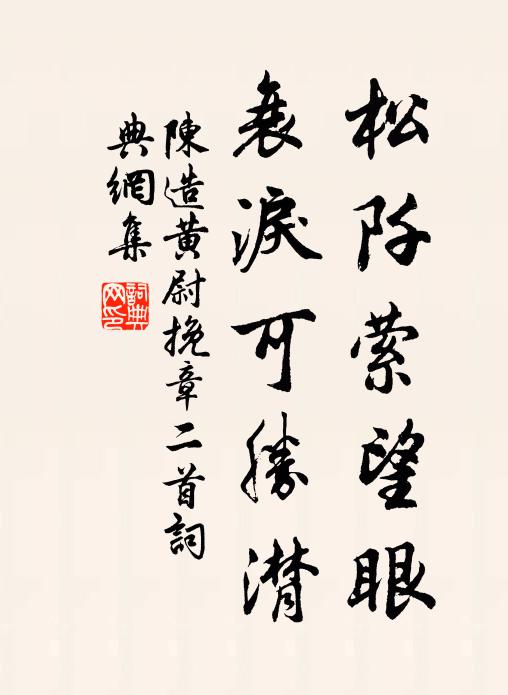 松阡縈望眼
衰淚可勝潸
陳造黃尉挽章二首詞
典網集
詞典
网印